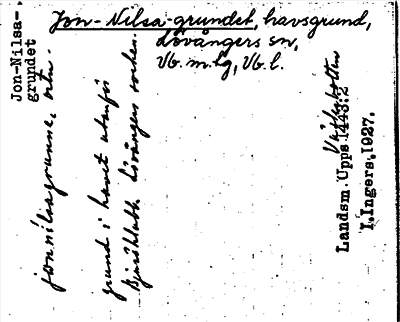 Jon-Nilsa-grundet, havsgrund,
Lövångers sn,
Vb. m. lg, Vb. l.
Jon-Nilsa-
grundet
jonnilsagrunne, ortn.
grund i havet utanför
Bjuröklubb, Lövångers socken.
Västerbotten
Landsm. Upps. 1443:2
I. Ingers, 1927.